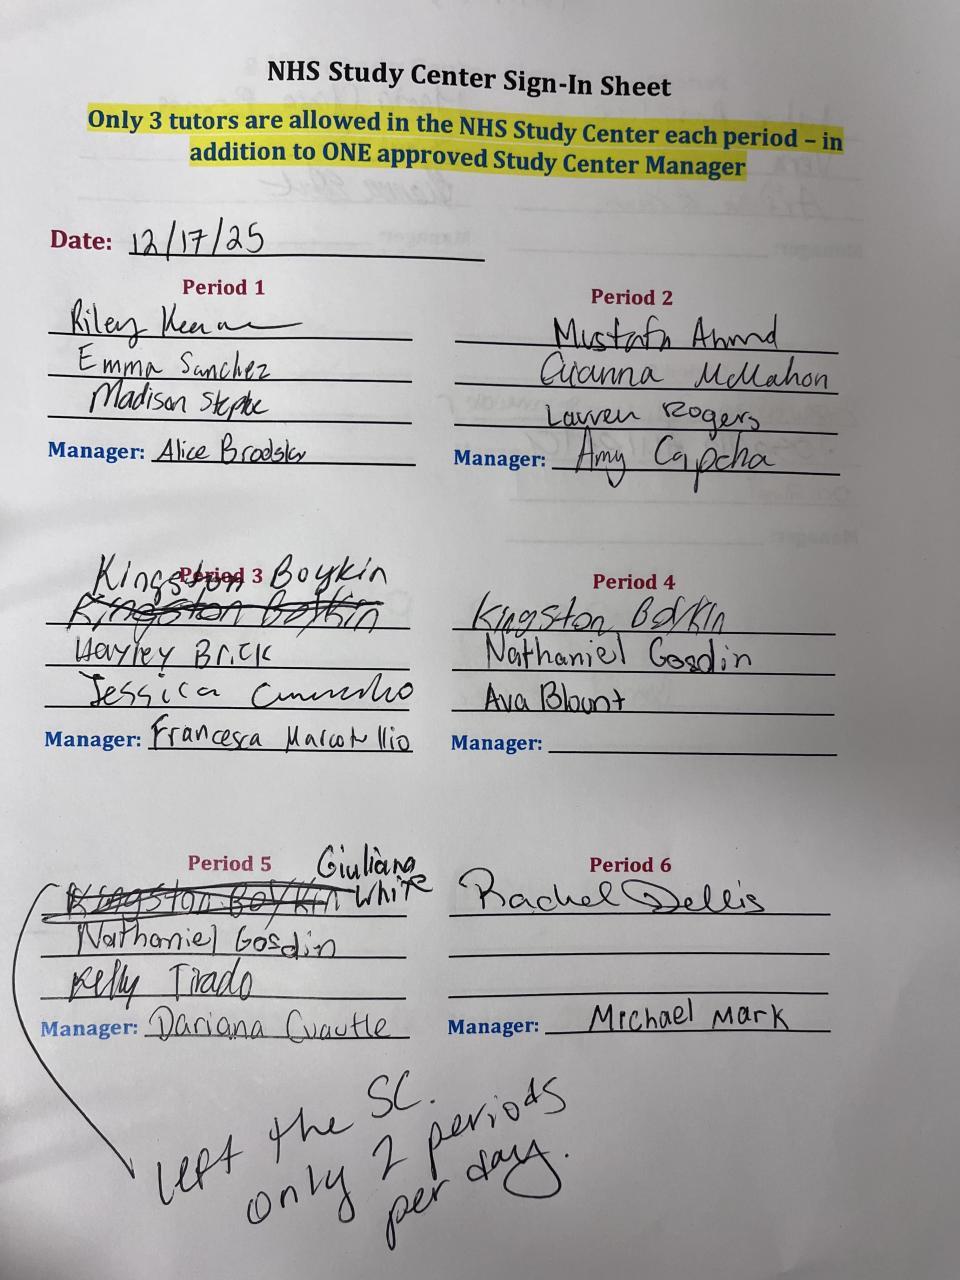 NHS Study Center Sign-In Sheet
Only 3 tutors are allowed in the NHS Study Center each period – in
addition to ONE approved Study Center Manager
Date: 12/17/25
Period 1
Riley
Emma Sanchez
Madison
Manager: Alice Brodsky
Period 2
Mustafa Ahmd
McMahon
Lauren Rogers
Manager: Amy Capcha
Period 3
Kingston Boykin
Kingston Boykin
Hayley Brick
Jessica
Manager: Francesca
Period 4
Kingston Boykin
Nathaniel Gosdin
Ava Blount
Manager:
Period 5
Giuliana
White
Kingston Boykin
Nathaniel Gosdin
Kelly Tirado
Manager: Dariana Cuautle
Period 6
Rachel Dellis
Manager: Michael Mark
left the SC.
only 2 periods
per day.